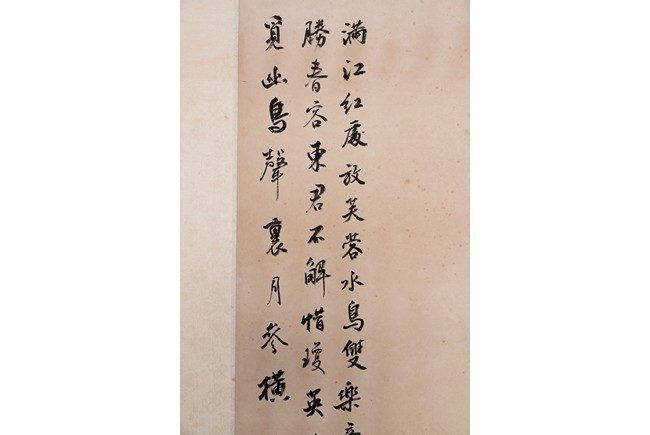 滿江紅處放芙蓉水鳥雙樂
勝春容東君不解惜瓊英
覓幽鳥聲裏月參橫